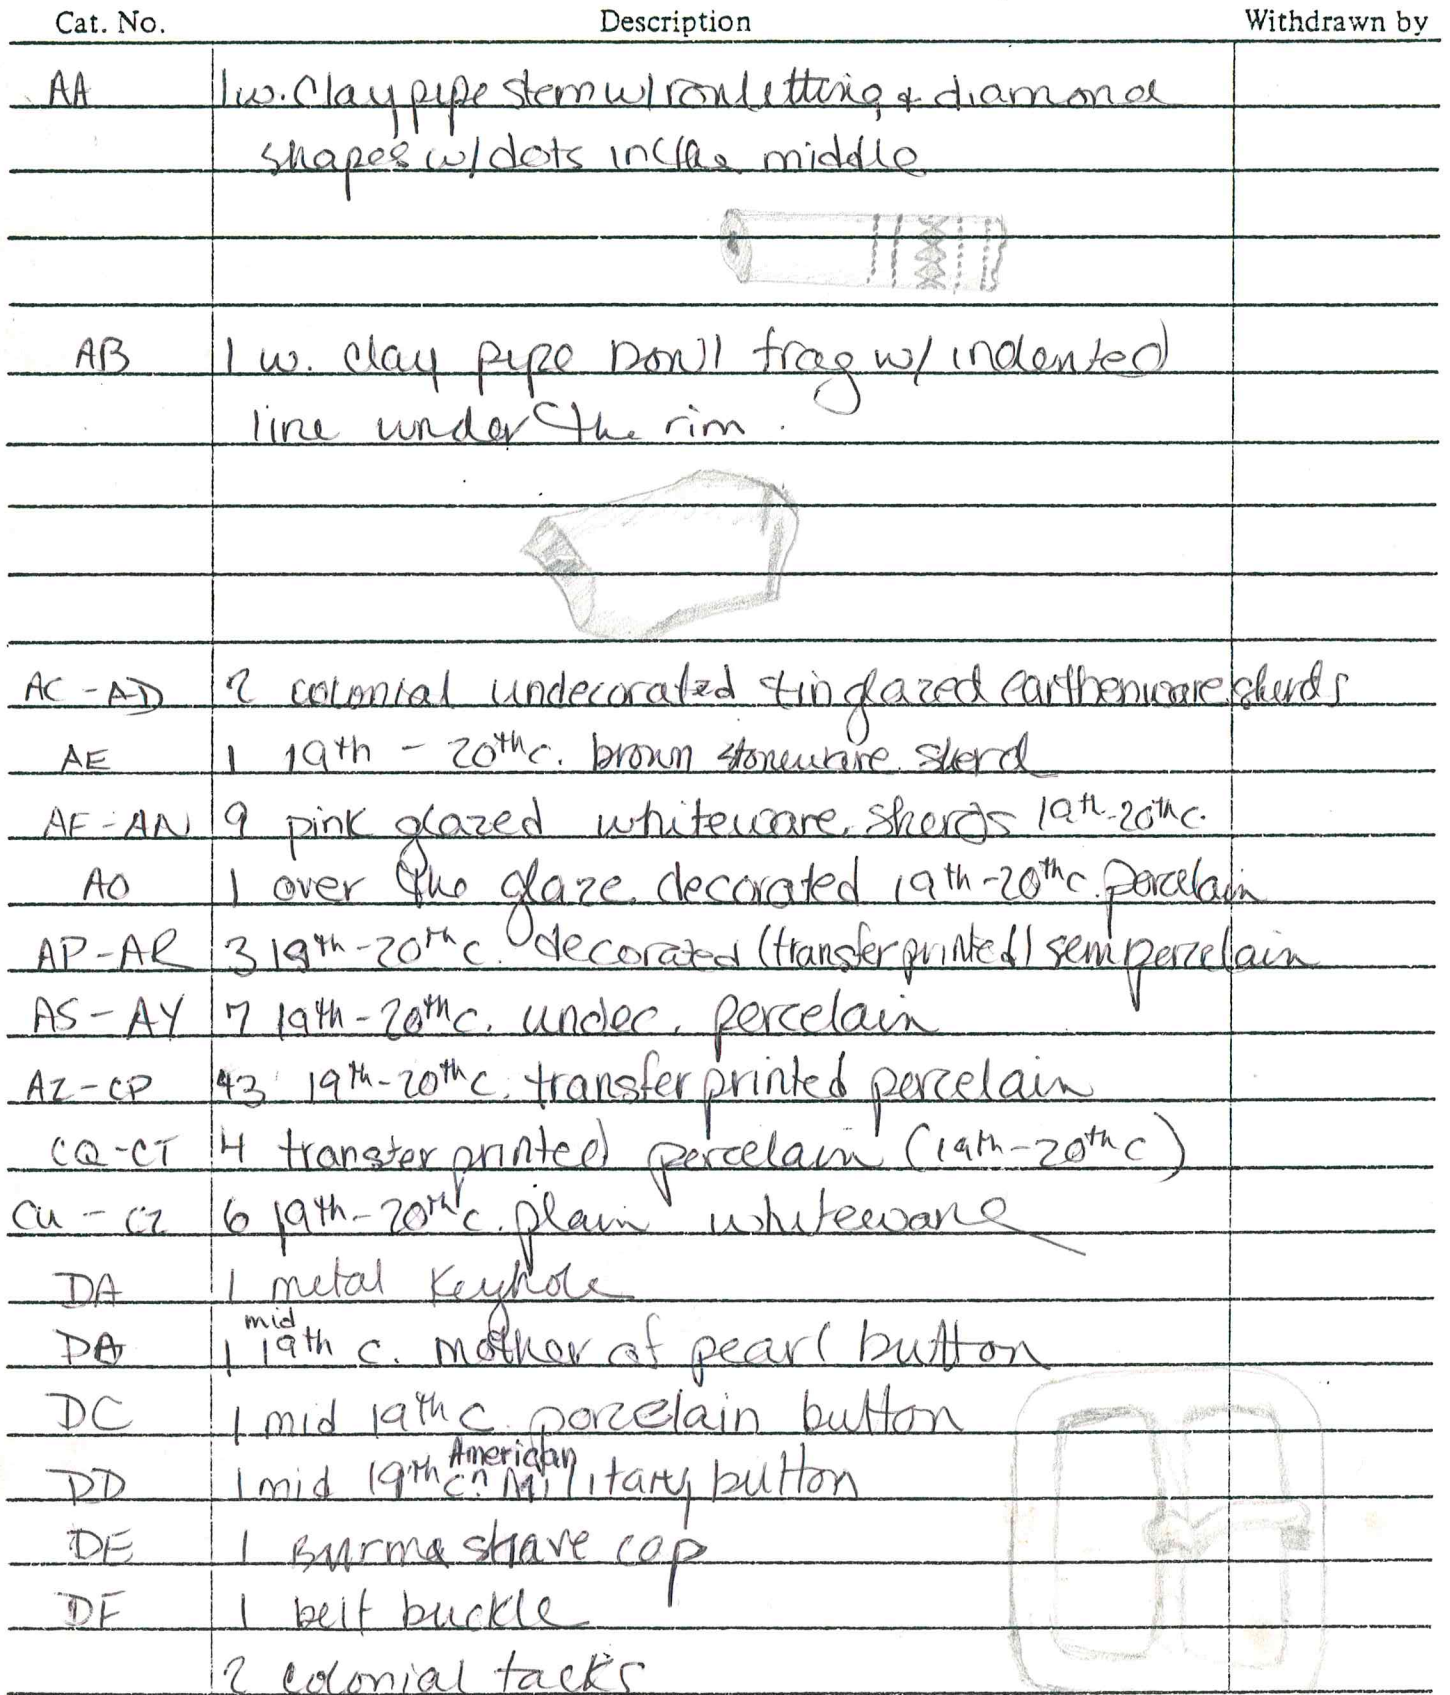 Cat. No. Description Withdrawn by
AA 1 w. Clay pipe stem w/ rouletting & diamond
shapes w/ dots in the middle
AB 1 w. clay pipe bowl frag w/ indented
line under the rim.
AC - AD 2 colonial undecorated tin glazed earthenware sherds
AE 1 19th - 20th c. brown stoneware sherd
AF - AN 9 pink glazed whiteware sherds 19th-20th c.
AO 1 over the glaze decorated 19th-20th c. porcelain
AP-AR 3 19th-20th c. decorated (transfer printed) semi percelain
AS - AY 7 19th-20th c. undec. percelain
AZ-CP 43 19th-20th c. transfer printed percelain
CQ-CT 4 transfer printed percelain (19th-20th c)
CU - CZ 6 19th-20th c. plain whiteware
DA 1 metal Keyhole
mid
1 19th c. mother of pearl button
DC 1 mid 19th c. porzelain button
American
DD 1 mid 19th cn Military button
DE 1 Burma shave cap
DF 1 belt buckle
2 colonial tacks